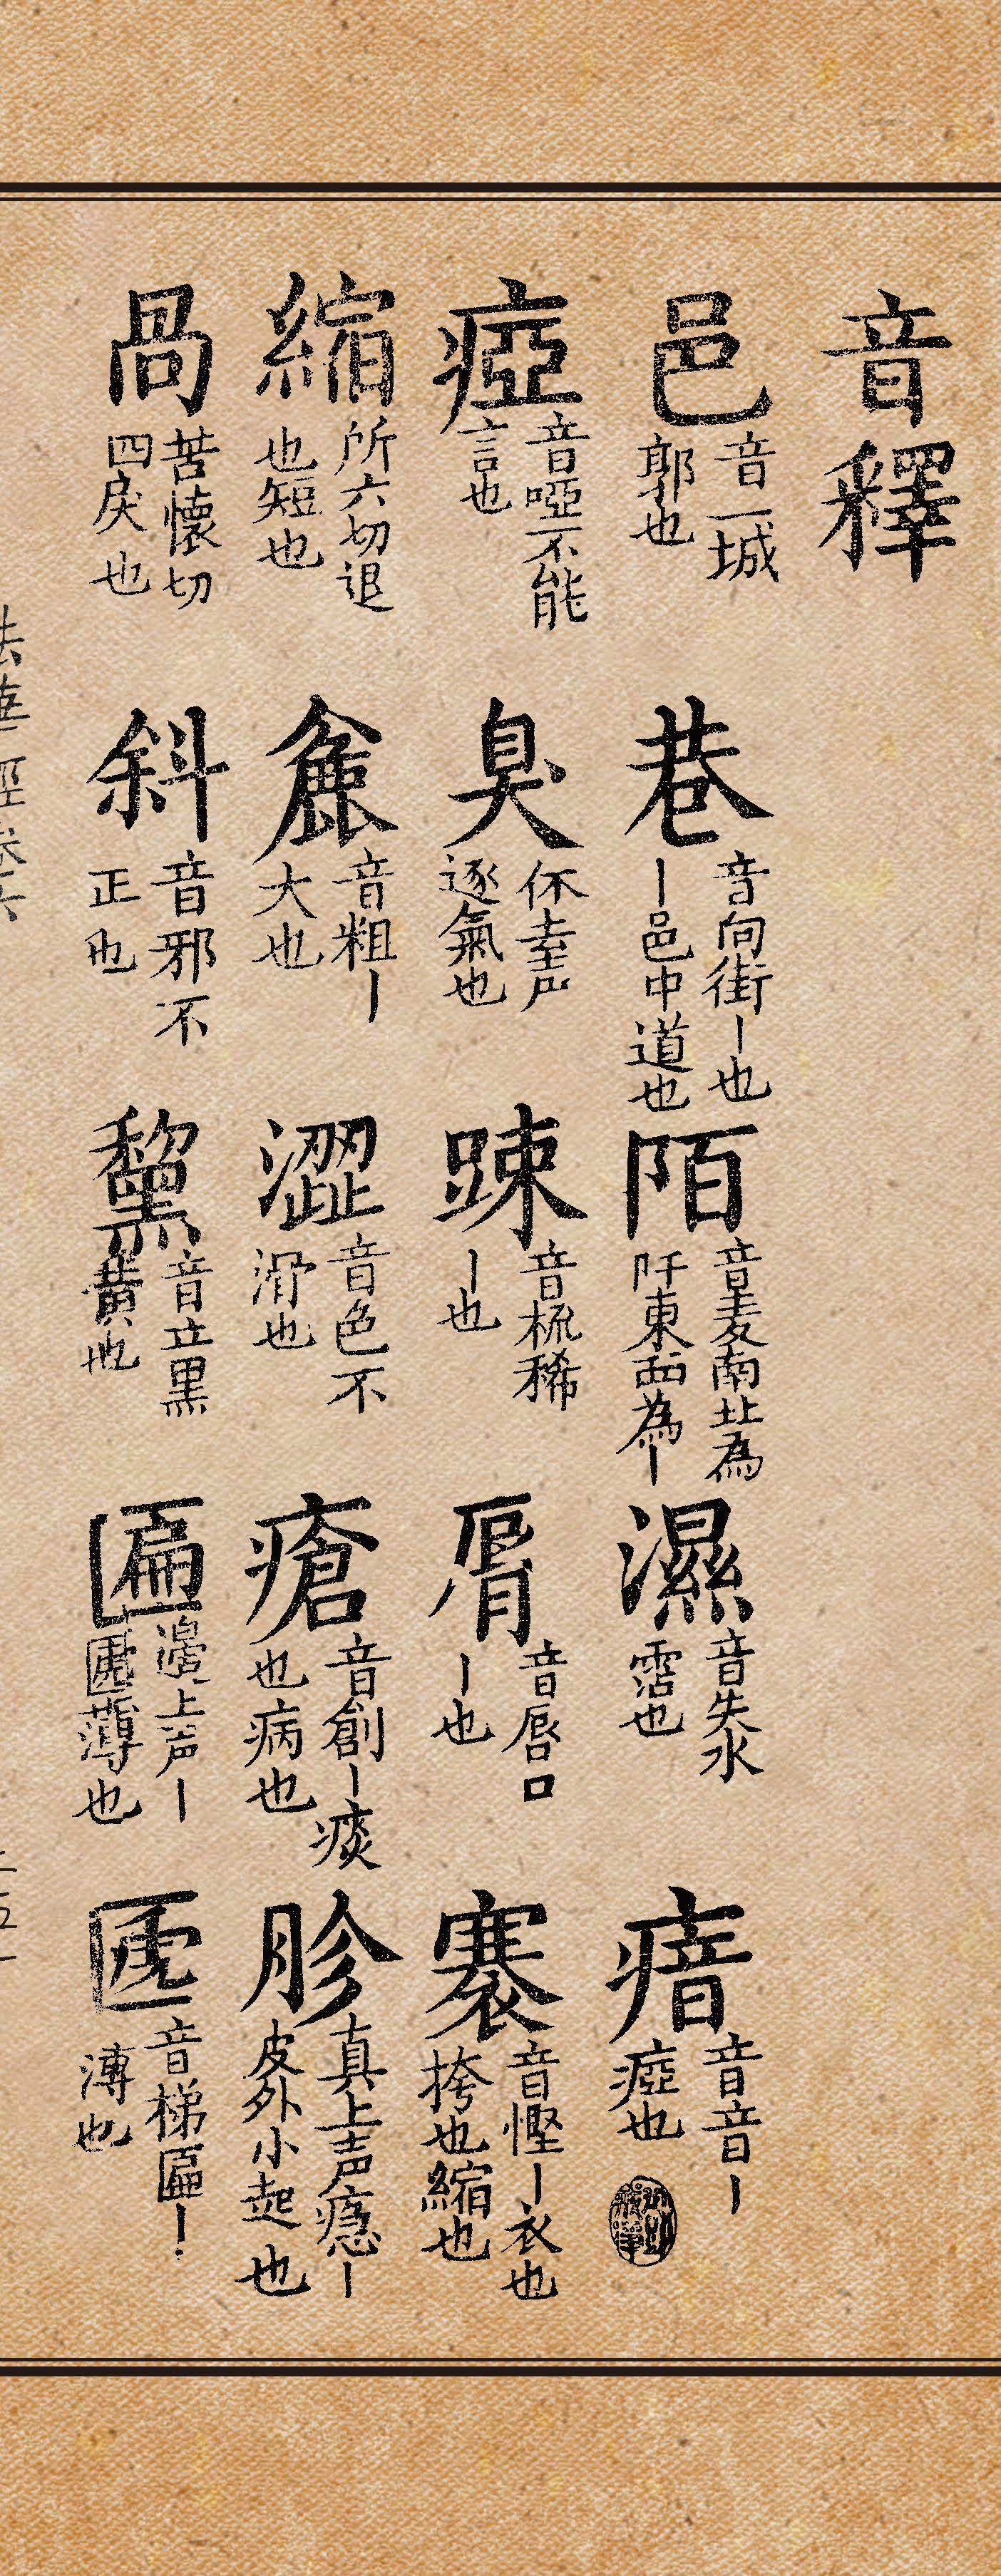 音釋
邑 音一城郭也 巷 音向街丨也丨邑中道也 陌 音麦南北為阡東西為丨 濕 音失水霑也 瘖 音音丨瘂也
瘂 音啞不能言也 臭 休去声逐氣也 踈 音梳稀丨也 脣 音唇口丨也 褰 音慳丨衣也挎也縮也
縮 所六切退也短也 麄 音粗丨大也 澀 音色不滑也 瘡 音創丨痰也病也 胗 真上声癮丨皮外小起也
咼 苦懷切四戾也 斜 音邪不正也 黧 音立黑黄也 匾 邊上声丨匾薄也 㔸 音梯匾丨溥也
法華經卷六